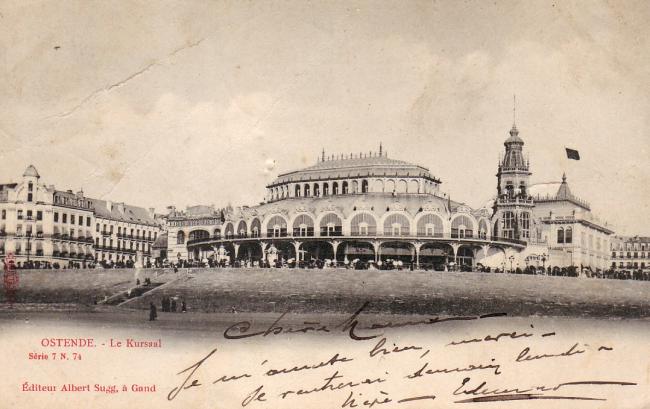 OSTENDE. - Le Kursaal
Série 7 N. 74
Éditeur Albert Sugg, à Gand
Je m'amuse bien, merci -
Je rentrerai demain lundi -